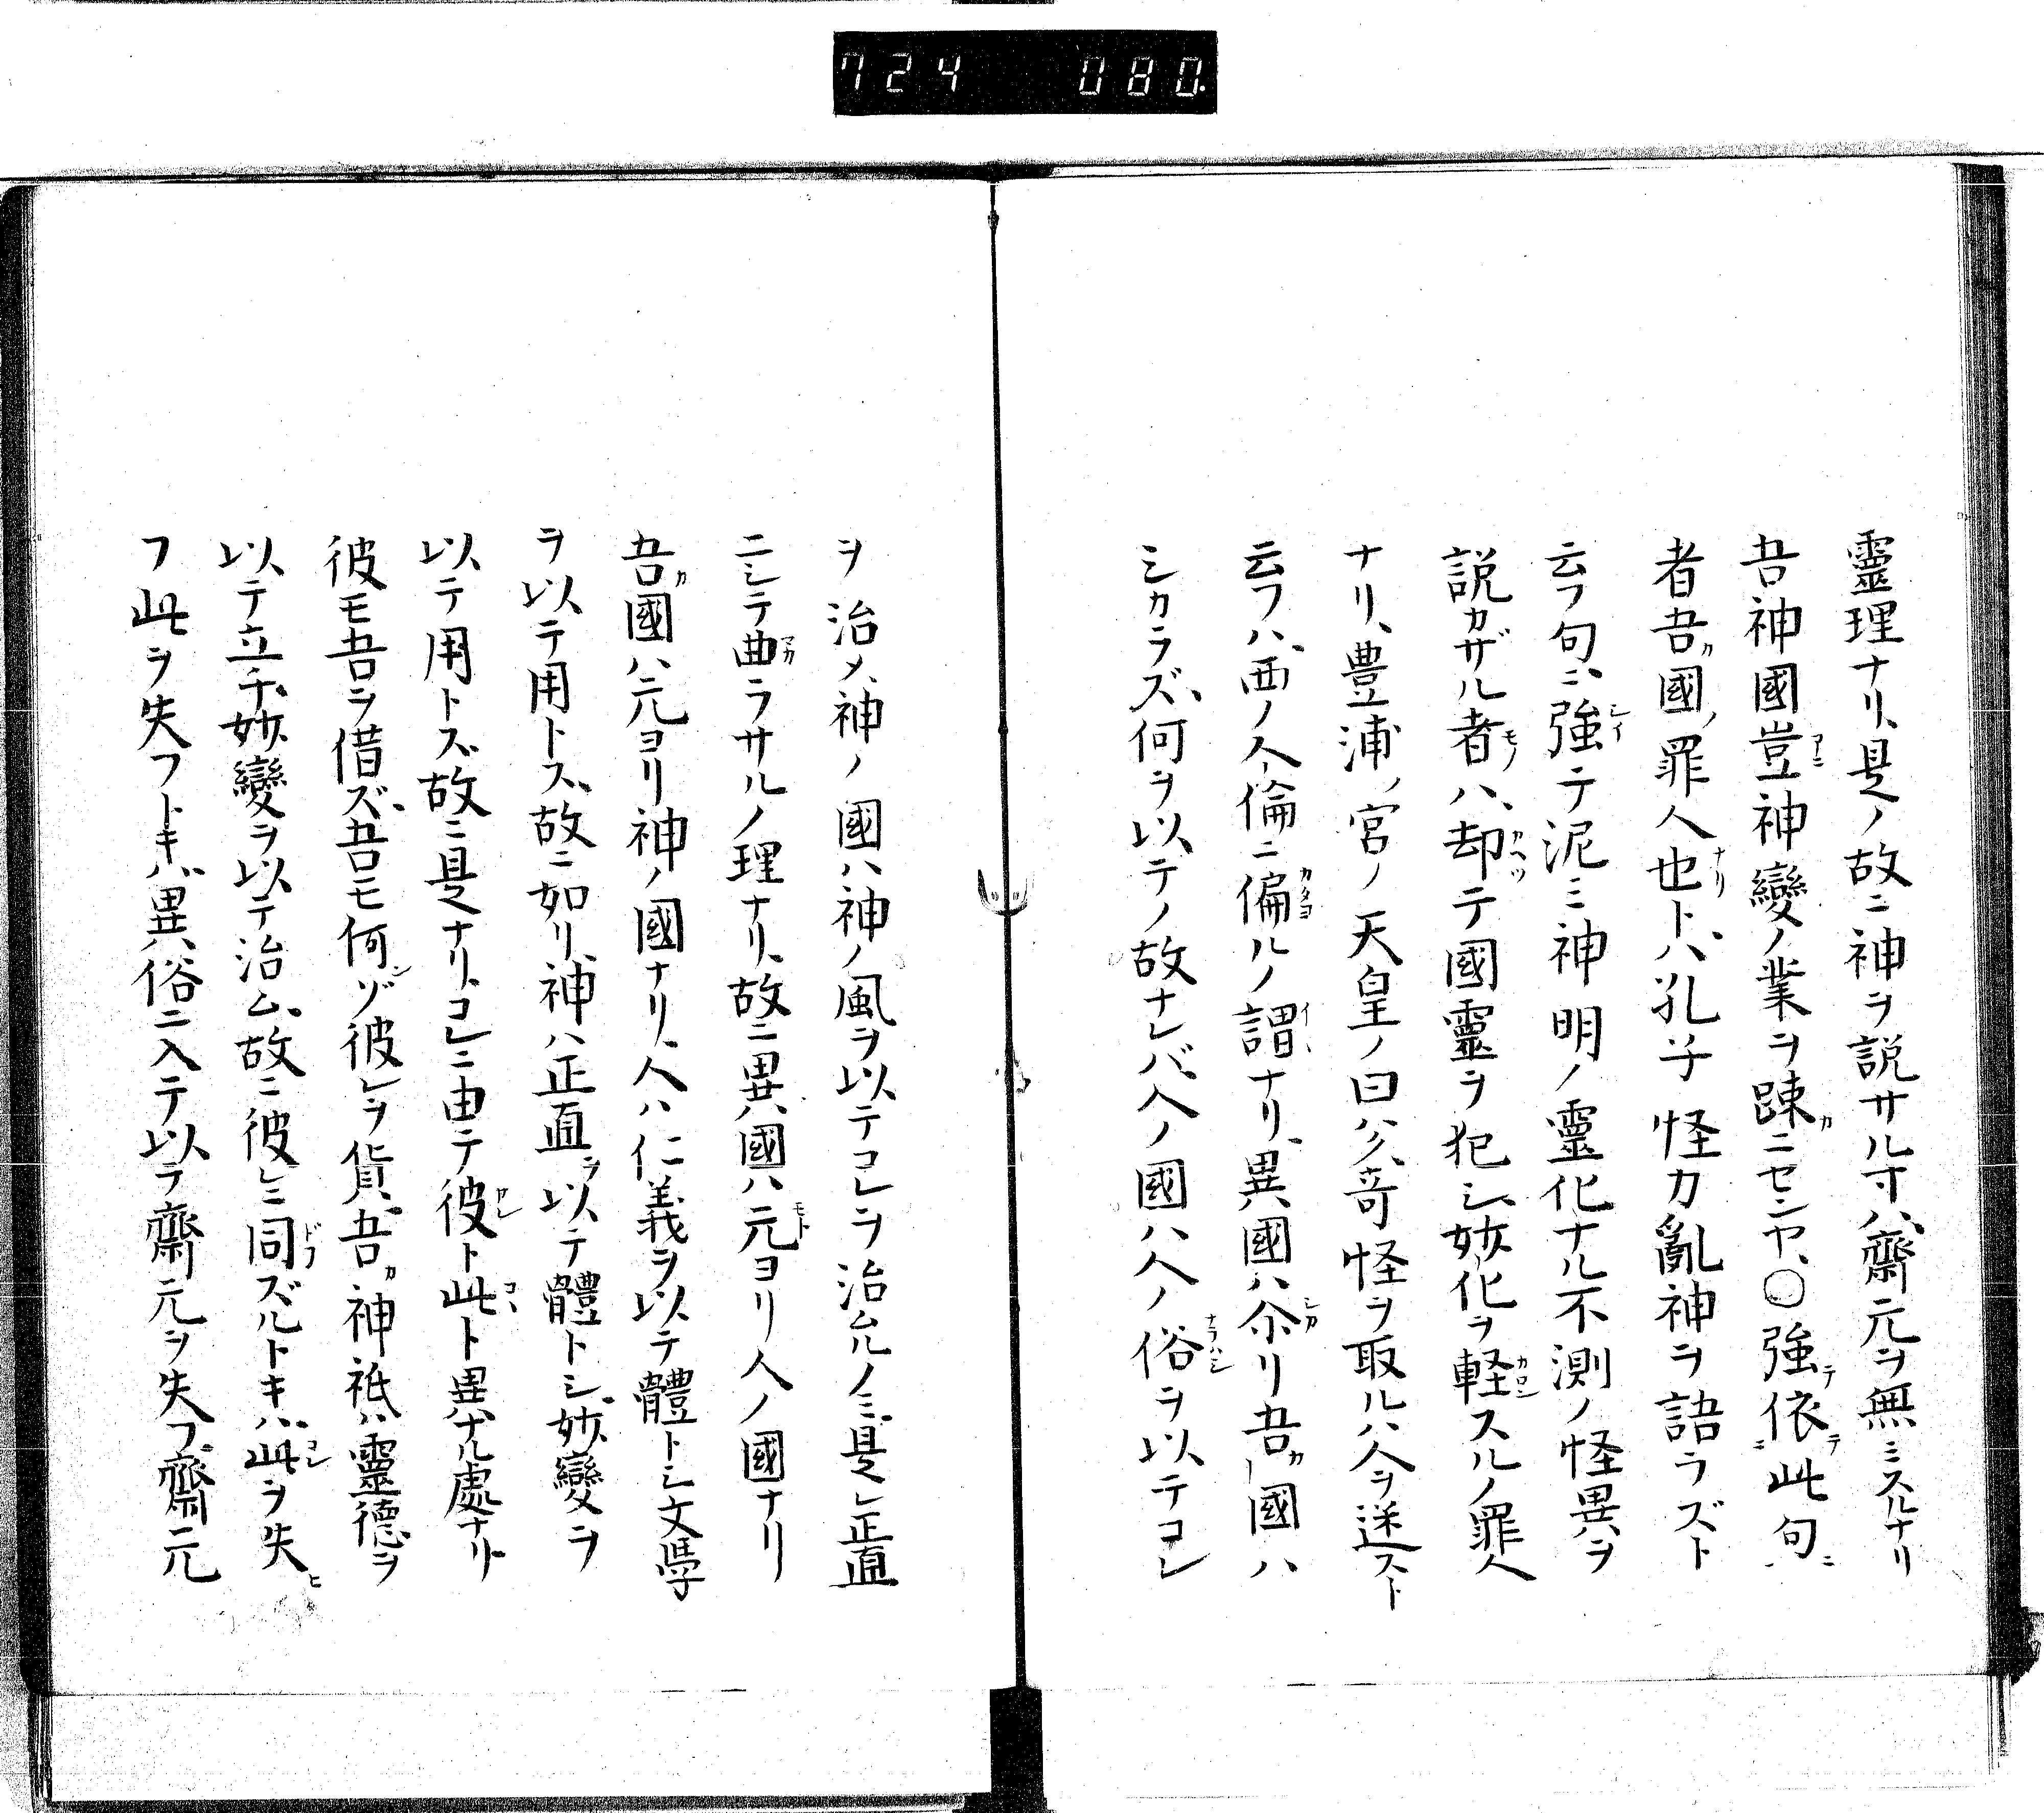 724 080.
靈理ナリ、是ノ故ニ神ヲ説サル寸ハ、齋元ヲ無ミスルナリ
吾神國豈神變ノ業ヲ踈ニセンヤ、〇強依此句
者吾國ノ罪人也トハ、孔子怪力亂神ヲ語ラズト
云フ句ニ、強テ泥ミ神明ノ靈化ナル不測ノ怪異ヲ
説カザル者ハ、却テ國靈ヲ犯シ、妙化ヲ軽スルノ罪人
ナリ、豊浦ノ宮ノ天皇ノ曰ハク、竒怪ヲ取ルハ人ヲ迷スト
云フハ、西ノ人倫ニ偏ルノ謂ナリ、異國ハ尒リ吾國ハ
シカラズ、何ヲ以テノ故ナレバ、人ノ國ハ人ノ俗ヲ以テコレ
ヲ治メ、神ノ國ハ神ノ風ヲ以テコレヲ治ルノミ、是レ正直
ニシテ曲ラサルノ理ナリ、故ニ異國ハ元ヨリ人ノ國ナリ
吾國ハ元ヨリ神ノ國ナリ、人ハ仁義ヲ以テ體トシ文學
ヲ以テ用トス、故ニ如リ、神ハ正直ヲ以テ體トシ、妙變ヲ
以テ用トス、故ニ是ナリ、コレニ由テ彼ト此ト異ナル處ナリ
彼モ吾ヲ借ズ、吾モ何ゾ彼レヲ貨、吾神祇ハ靈德ヲ
以テ立チ、妙變ヲ以テ治ム、故ニ彼レニ同ズルトキハ、此ヲ失
フ此ヲ失フトキハ、異俗ニ入テ以テ齋元ヲ失フ、齋元